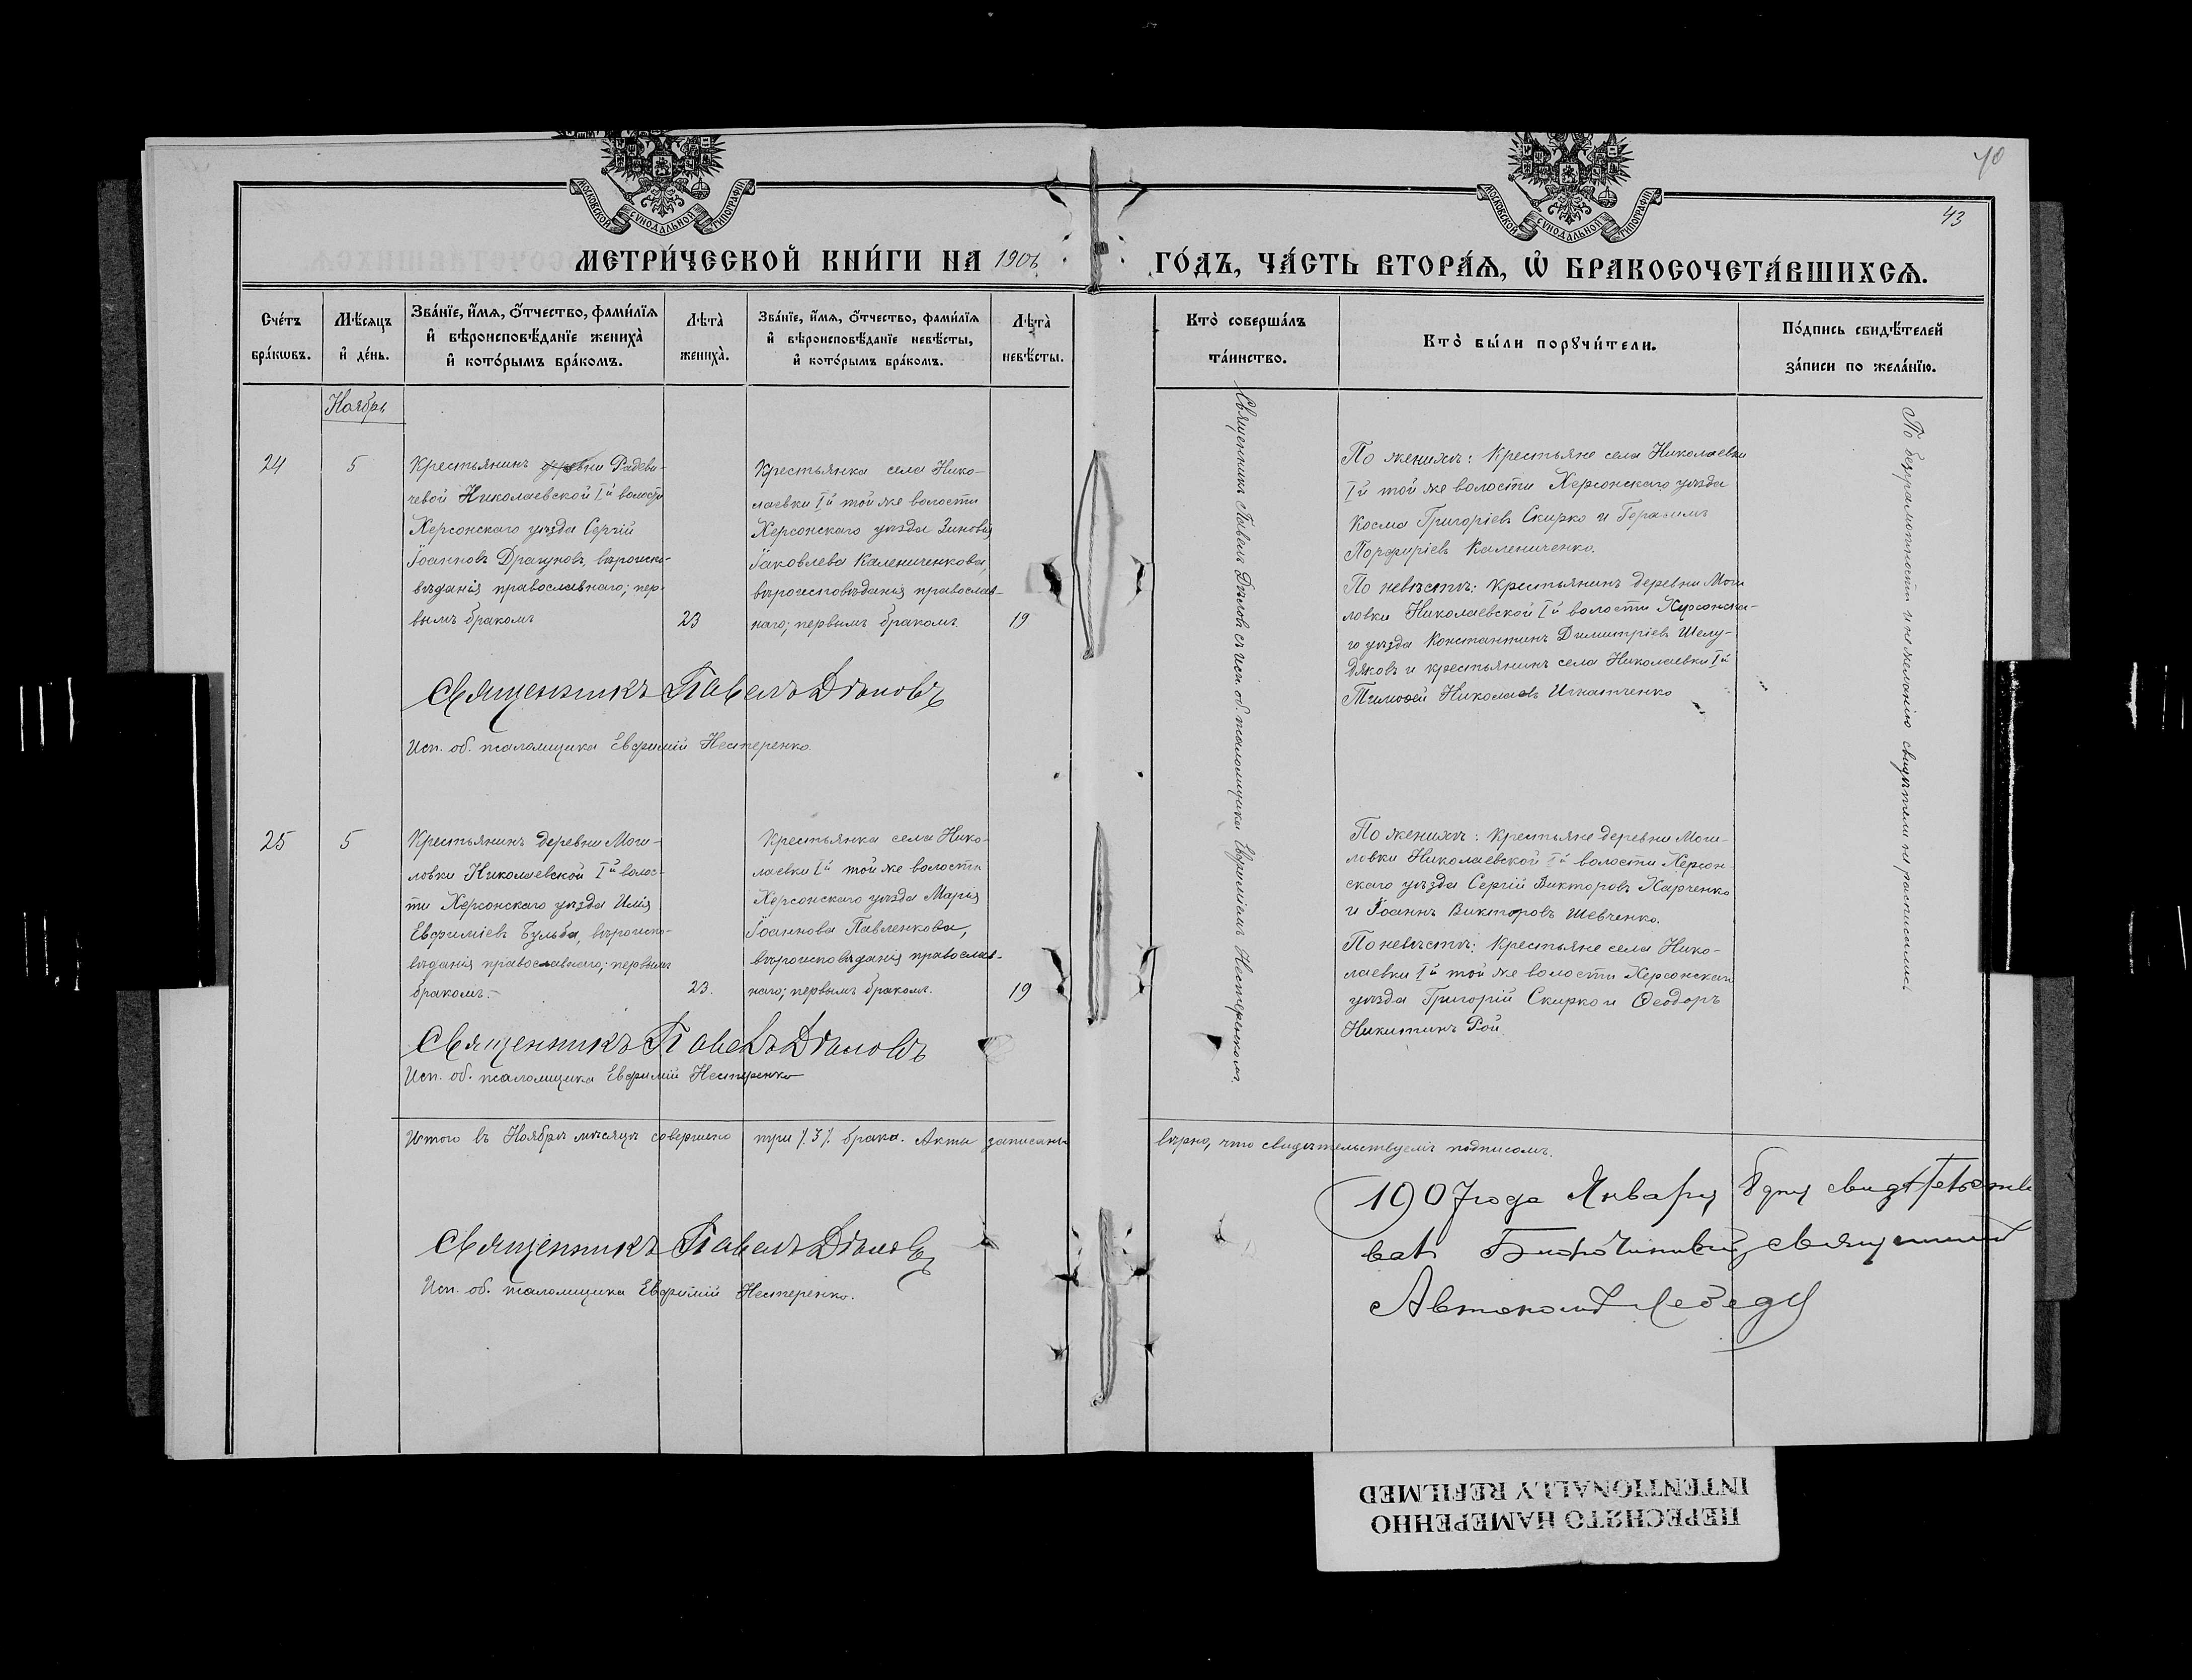 40
43
МОСКОВСКОЙ СѴНОДАЛЬНОЙ ТИПОГРАФІИ
МОСКОВСКОЙ СѴНОДАЛЬНОЙ ТИПОГРАФІИ
МЕТРИ́ЧЕСКОЙ КНИ́ГИ НА 1906
ГО́ДЪ, ЧА́СТЬ ВТОРА́Ѧ, Ѽ БРАКОСОЧЕТА́ВШИХСѦ.
Сче́тъ бра́кѡвъ.
Мѣ́сѧцъ и҆ де́нь.
Зва́нїе, и҆́мѧ, ѻ҆́тчество, фами́лїѧ
и҆ вѣроисповѣ́данїе жениха̀
и҆ кото́рымъ бра́комъ.
Лѣта̀ жениха̀.
Зва́нїе, и҆́мѧ, ѻ҆́тчество, фами́лїѧ
и҆ вѣроисповѣ́данїе невѣ́сты,
и҆ кото́рымъ бра́комъ.
Лѣта̀ невѣ́сты.
Кто̀ соверша́лъ
та́инство.
Кто̀ бы́ли порꙋчи́тели.
По́дпись свидѣ́телей
за́писи по жела́нїю.
Ноябрь
24
5
Крестьянинъ деревни Радеви-
чевой Николаевской Iй волости
Херсонскаго уѣзда Сергій
Іоанновъ Драгуновъ, вѣроиспо-
вѣданія православнаго; пер-
вымъ бракомъ
23
Крестьянка села Нико-
лаевки Iй той же волости
Херсонскаго уѣзда Зиновія
Іаковлева Калениченкова,
вѣроисповѣданія православ-
наго; первымъ бракомъ.
19
Священникъ Павелъ Дѣловъ
Исп. об. псаломщика Евфимій Нестеренко.
По женихѣ: Крестьяне села Николаевки
Iй той же волости Херсонскаго уѣзда
Косма Григоріевъ Скирко и Герасимъ
Порфиріевъ Калениченко.
По невѣстѣ: Крестьянинъ деревни Моги
ловки Николаевской Iй волости Херсонска-
го уѣзда Константинъ Димитріевъ Шелу-
дяковъ и крестьянинъ села Николаевки Iй
Тимоѳей Николаевъ Игнатченко
25
5
Крестьянинъ деревни Моги-
ловки Николаевской Iй волос-
ти Херсонскаго уѣзда Илія
Евфиміевъ Бульба, вѣроиспо-
вѣданія православнаго; первымъ
бракомъ.-
23.
Крестьянка села Нико-
лаевки Iй той же волости
Херсонскаго уѣзда Марія
Іоаннова Павленкова,
вѣроисповѣданія православ-
наго; первымъ бракомъ.
19
Священникъ Павелъ Дѣловъ
Исп. об. псаломщика Евфимій Нестеренко
По женихѣ: Крестьяне деревни Моги-
ловки Николаевской Iй волости Херсон-
скаго уѣзда Сергій Викторовъ Харченко
и Іоаннъ Викторовъ Шевченко.
По невѣстѣ: Крестьяне села Нико-
лаевки Iй той же волости Херсонскаго
уѣзда Григорій Скирко и Ѳеодоръ
Никитинъ Рой
Священникъ Павелъ Дѣловъ съ исп. об. псаломщика Евфиміемъ Нестеренкомъ.
По безграмотности и нежеланію свидѣтели не расписались
Итого въ Ноябрѣ мѣсяцѣ совершено три /3/ брака. Акты записаны
вѣрно, что свидѣтельствуемъ подписомъ.
Священникъ Павелъ Дѣловъ
Исп. об. псаломщика Евфимій Нестеренко.
1907 года Января 8 дня свидѣтельство
валъ Благочинный, священникъ
Автономъ Лебедь
ПЕРЕСНЯТО НАМЕРЕННО
INTENTIONALLY REFILMED